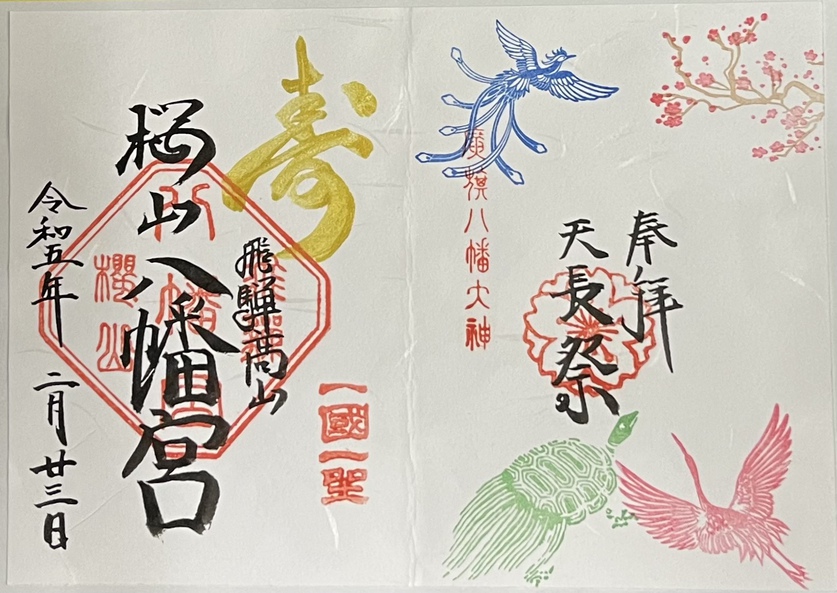 奉拝
天長祭
應祺八幡大神
寿
一國一聖
飛騨高山
桜山八幡宮
櫻山
令和五年 二月廿三日